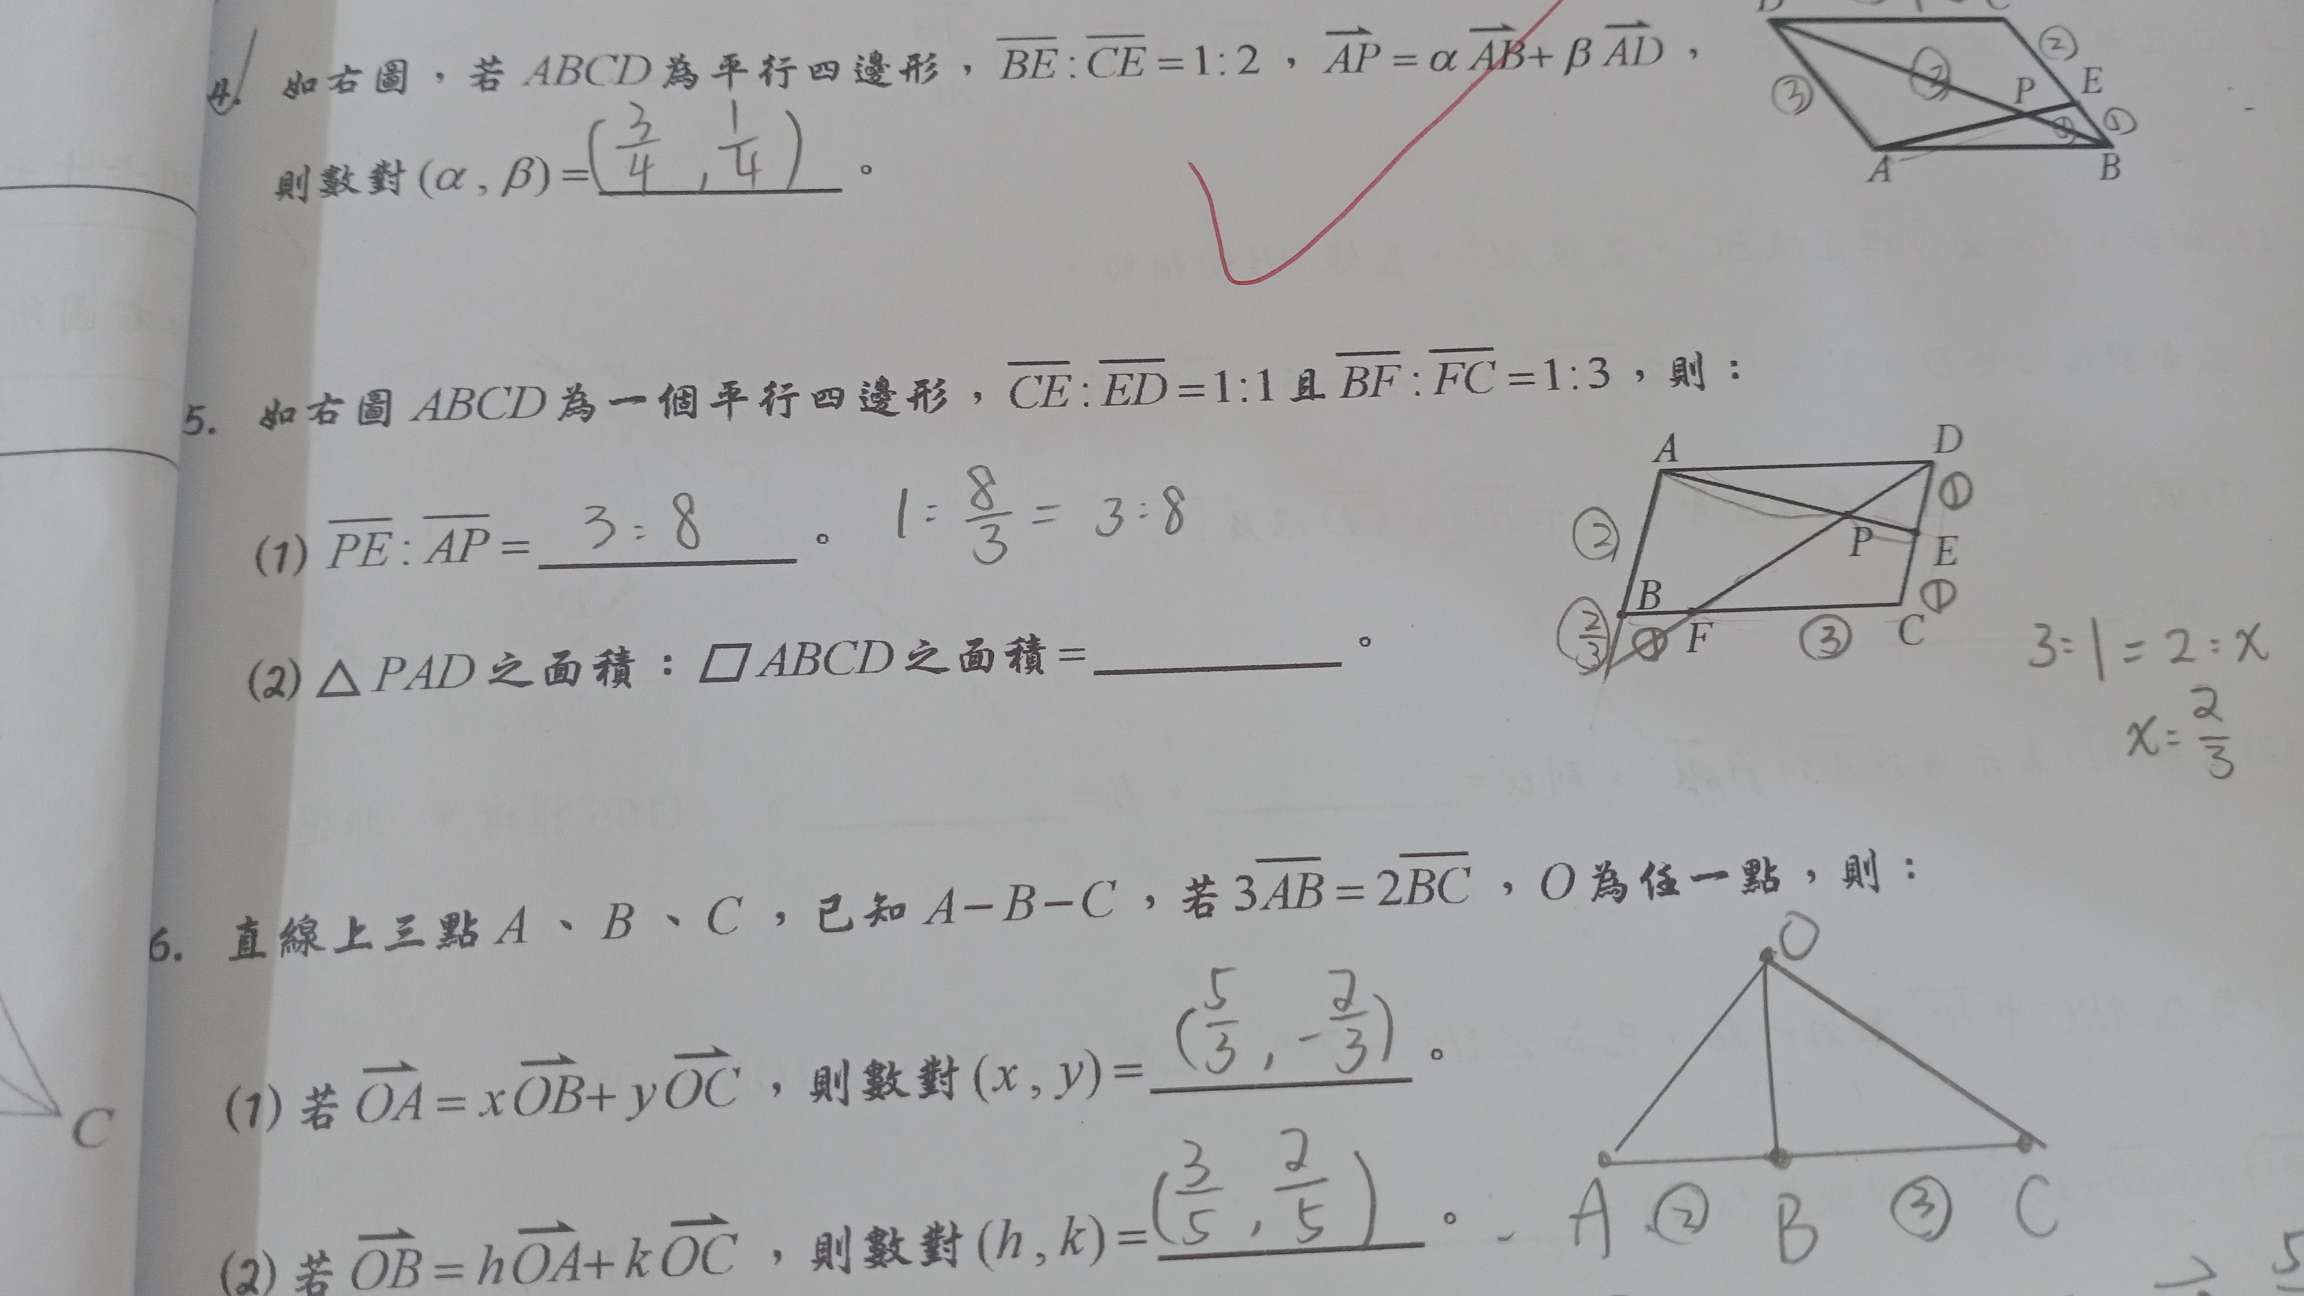 4. 如右圖，若 ABCD 為平行四邊形，BE : CE = 1 : 2，AP = α AB + β AD，
則數對 (α , β) = (3/4 , 1/4)。
② P E ③ ③ ① A B
5. 如右圖 ABCD 為一個平行四邊形，CE : ED = 1 : 1 且 BF : FC = 1 : 3，則：
A D
(1) PE : AP = 3 : 8。 1 : 8/3 = 3 : 8
② ① P E
B ① 2/3 ① F ③ C
(2) △ PAD 之面積：▱ ABCD 之面積 = ______。
3 : 1 = 2 : x
x = 2/3
6. 直線上三點 A、B、C，已知 A－B－C，若 3AB = 2BC，O 為任一點，則：
O
(1) 若 OA = x OB + y OC，則數對 (x , y) = (5/3 , -2/3)。
(2) 若 OB = h OA + k OC，則數對 (h , k) = (3/5 , 2/5)。
A ② B ③ C
C